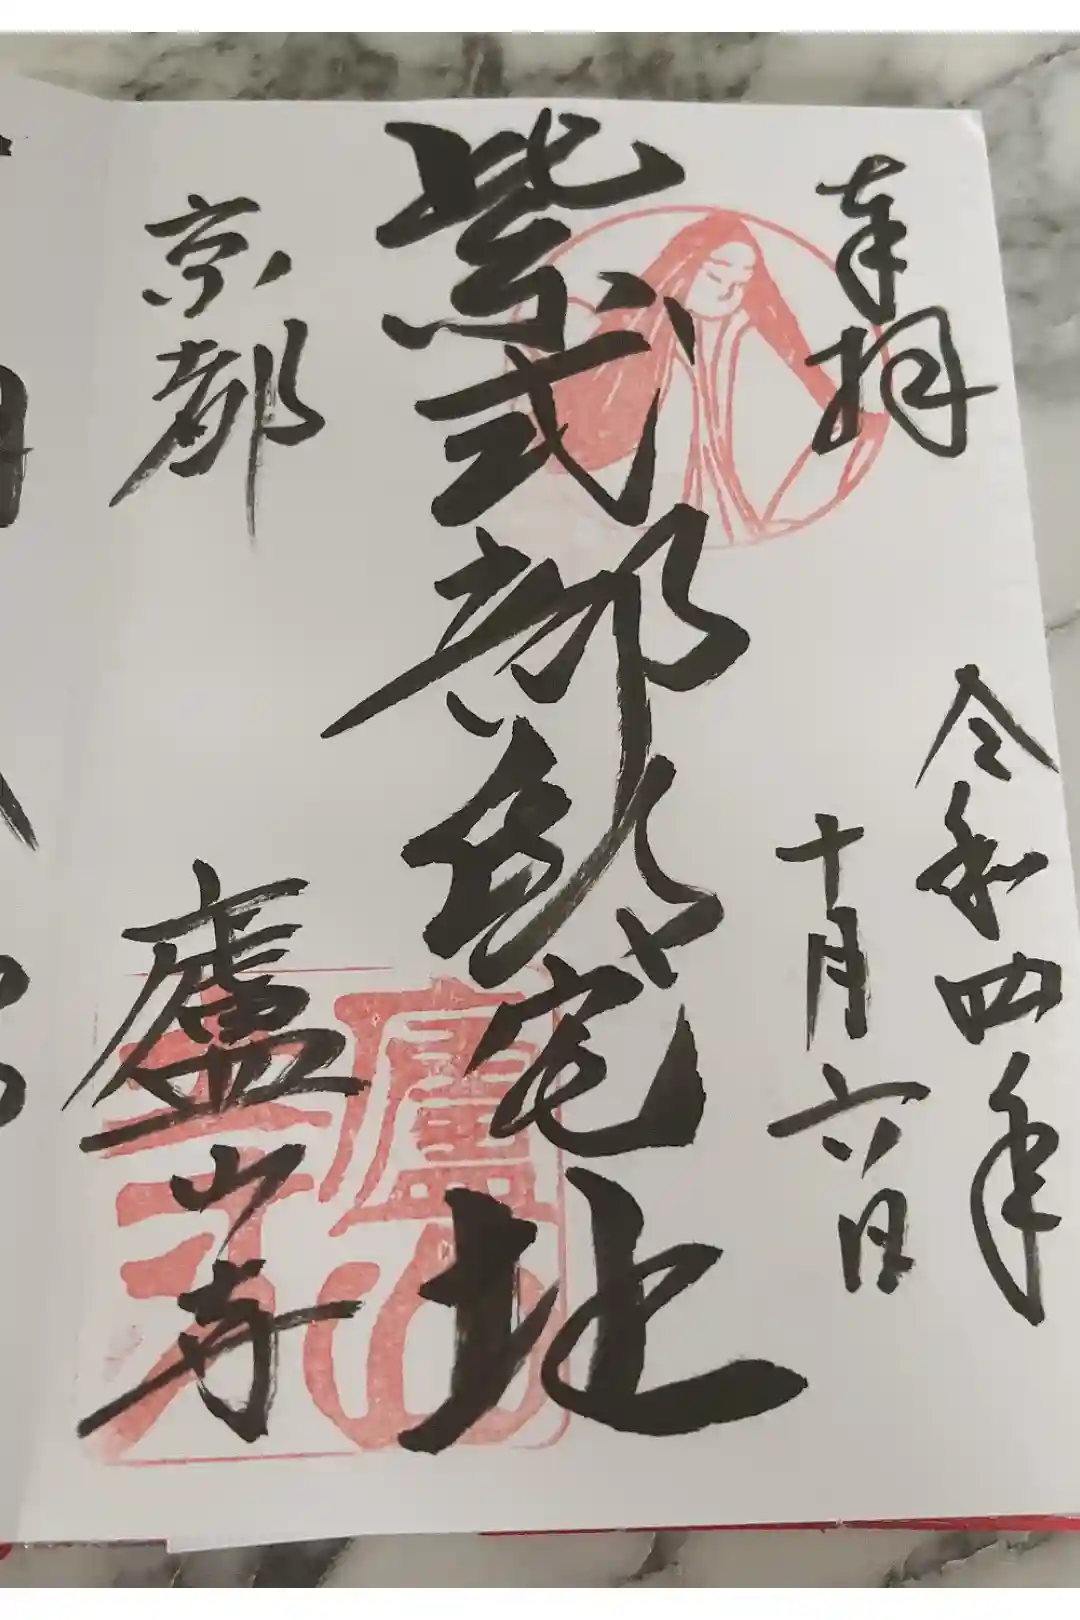 奉拝
令和四年
十月六日
紫式部邸宅址
京都
廬山寺
廬山
寺